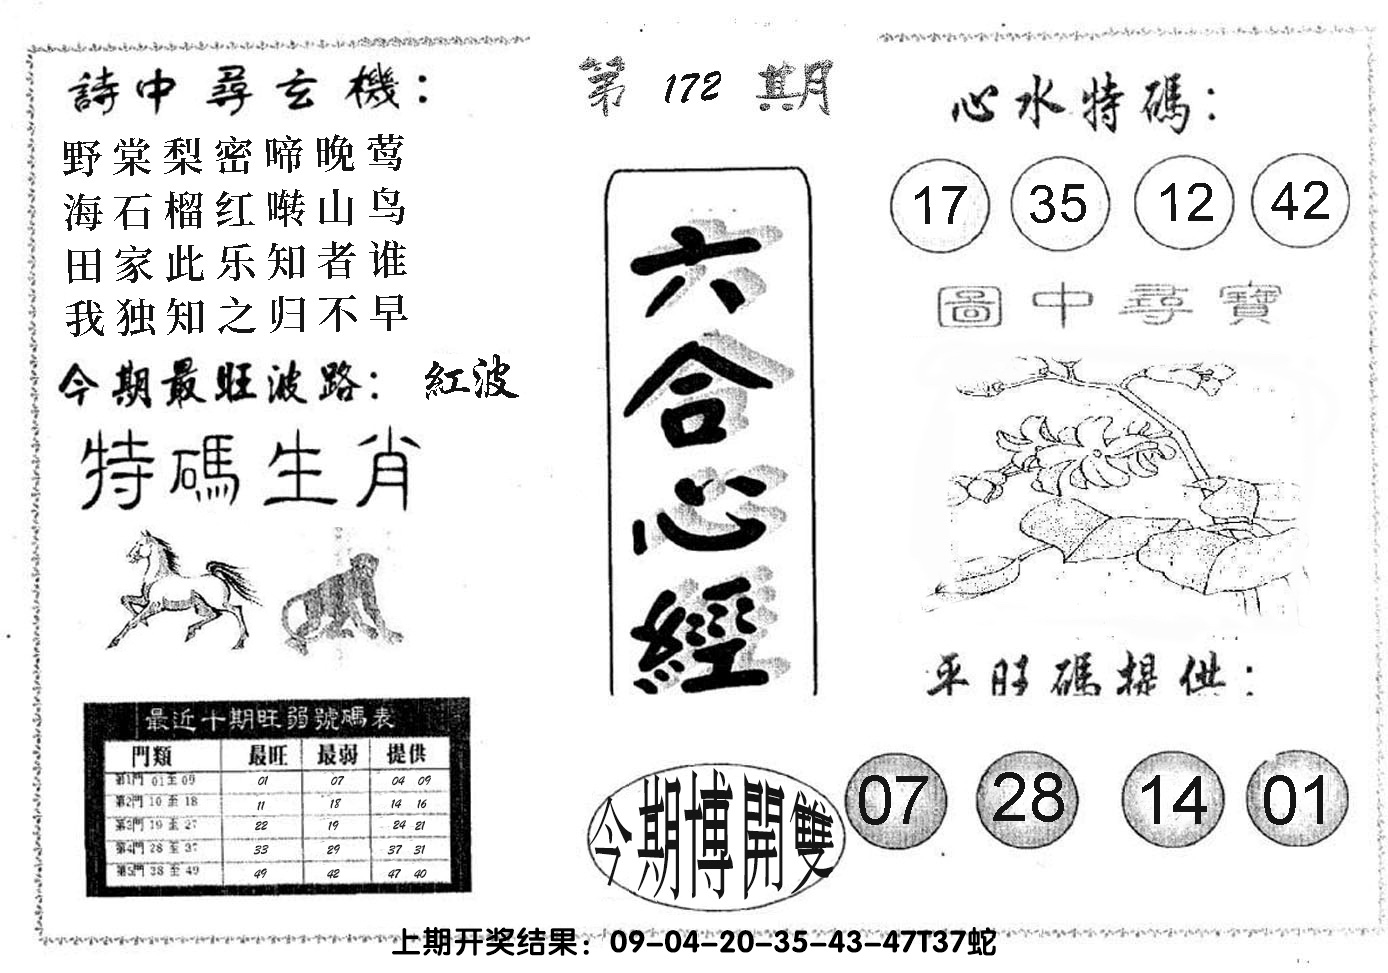 詩中尋玄機：
野棠梨密啼晚莺
海石榴红啭山鸟
田家此乐知者谁
我独知之归不早
今期最旺波路： 紅波
特碼生肖
最近十期旺弱號碼表
門類 最旺 最弱 提供
第1門 01至09 01 07 04 09
第2門 10至18 11 18 14 16
第3門 19至27 22 19 24 21
第4門 28至37 33 29 37 31
第5門 38至49 49 42 47 40
第172期
六合心經
今期博開雙
心水特碼：
17 35 12 42
圖中尋寶
平旺碼提供：
07 28 14 01
上期开奖结果：09-04-20-35-43-47T37蛇